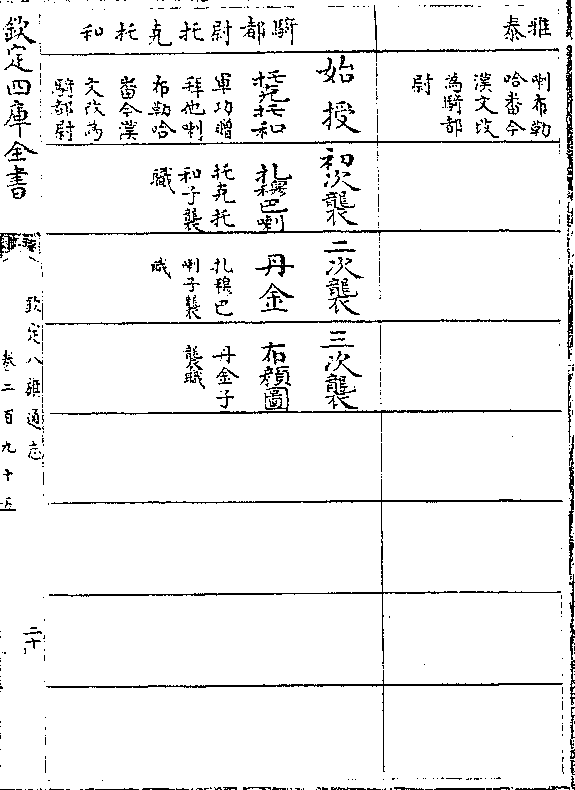 雅泰
喇布勒
哈番今
漢文改
為騎都
尉
騎都尉托克托和
始授
托克托和
軍功贈
拜他喇
布勒哈
番今漢
文改為
騎都尉
初次襲
扎穆巴喇
托克托
和子襲
職
二次襲
丹金
扎穆巴
喇子襲
職
三次襲
布顏圖
丹金子
襲職
欽定四庫全書
欽定八旗通志
卷二百九十五
二十